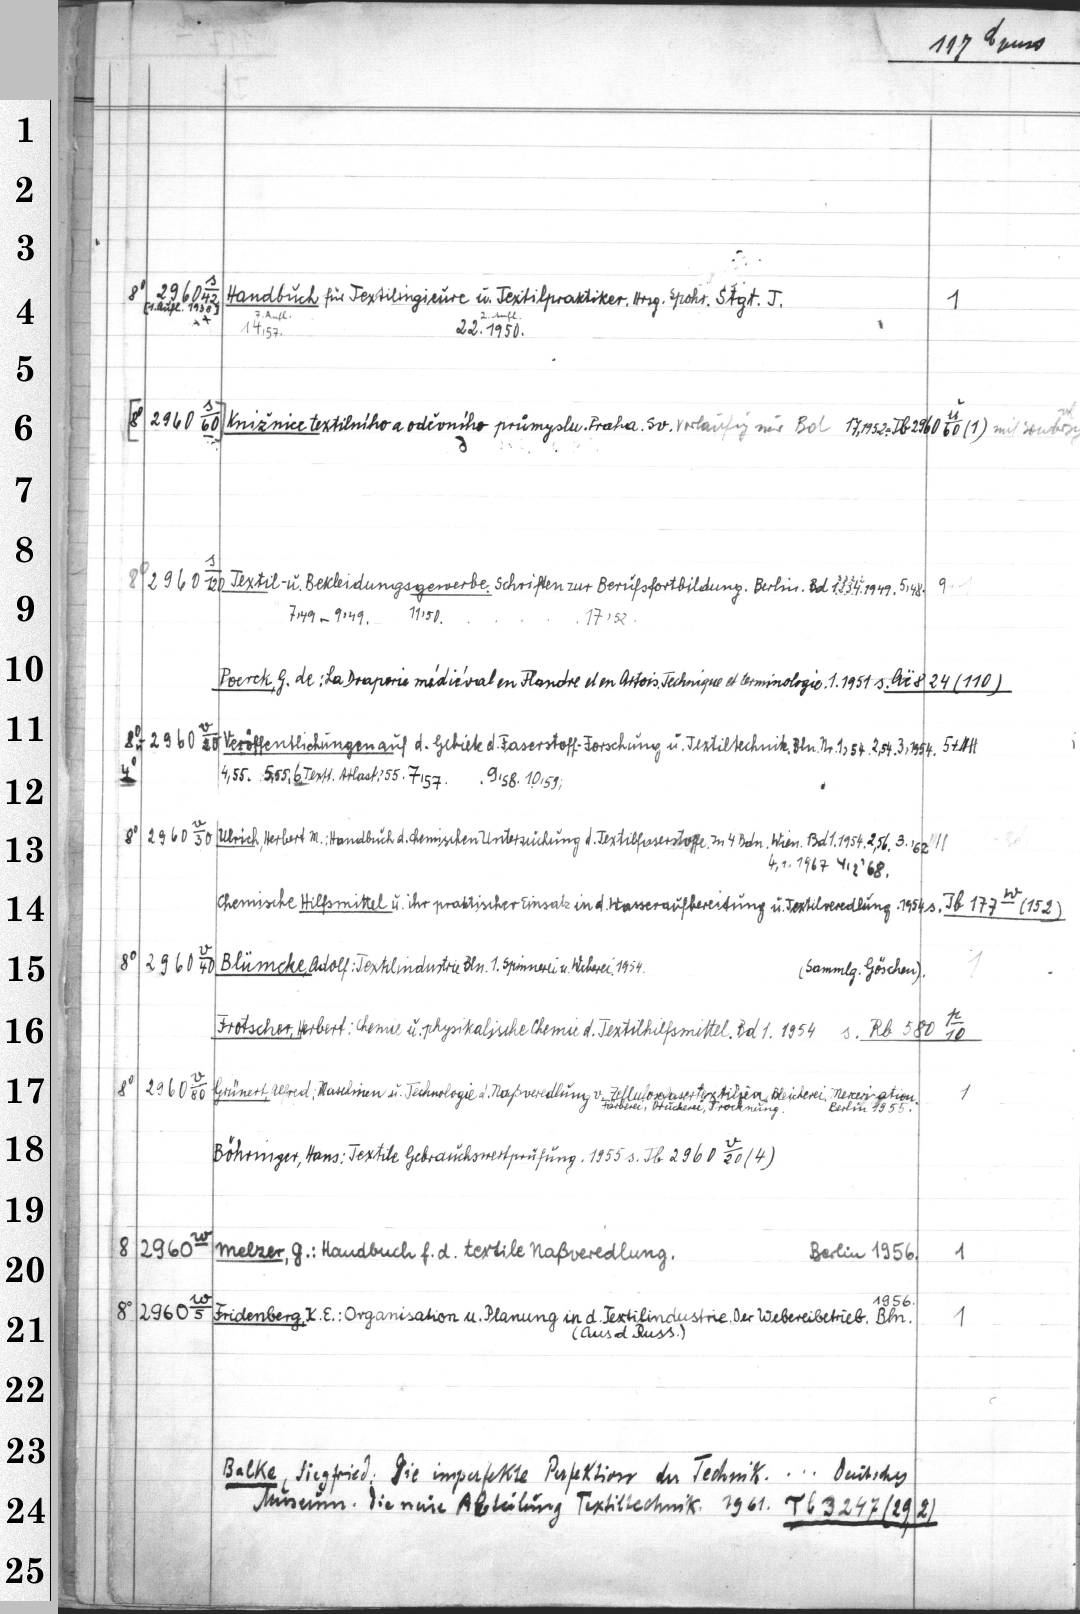 117
1
2
3
8° 2960 s/42 Handbuch für Textilingieure u. Textilpraktiker. Hrsg. Spohr. Stgt. T. 1
4
[1. Aufl. 1938] 7. Aufl. 2. Aufl.
14,57. 22. 1950.
5
6
[8° 2960 s/60] Knižnice textilního a oděvního průmyslu. Praha. Sv. vorläufig nur Bd 17,1952 = Tb 2960 ü/60 (1) mit
7
8
8° 2960 s/120 Textil- u. Bekleidungsgewerbe. Schriften zur Berufsfortbildung. Berlin. Bd 1949. 5,48. 9
9
7,49 – 9,49. 11,50. 17,52.
10
Poerck, G. de: La Draperie médiéval en Flandre et en Artois. Technique et terminologie. 1. 1951 s. Aë 8 24 (110)
11
8° u. 4° 2960 v/20 Veröffentlichungen auf d. Gebiete d. Faserstoff-Forschung u. Textiltechnik. Bln. Nr. 1,54. 2,54. 3,1954.
4,55. 5,55, 6 Textt. Atlast: 55. 7,57. 9,58. 10,59;
12
13
8° 2960 v/30 Ulrich, Herbert M.: Handbuch d. chemischen Untersuchung d. Textilfaserstoffe. In 4 Bdn. Wien. Bd 1. 1954. 2,56. 3.,'62
4,1. 1967 4,2 '68.
14
Chemische Hilfsmittel u. ihr praktischer Einsatz in d. Wasseraufbereitung u. Textilveredlung. 1954 s. Tb 177 w (152)
15
8° 2960 v/40 Blümcke, Adolf: Textilindustrie Bln. 1. Spinnerei u. Weberei. 1954. (Sammlg. Göschen). 1
16
Frotscher, Herbert: Chemie u. physikalische Chemie d. Textilhilfsmittel. Bd 1. 1954 s. Rb 580 p/10
17
8° 2960 v/80 Grünert, Alfred: Maschinen u. Technologie d. Naßveredlung v. Zellulosefasertextilien. Bleicherei, Merzerisation, 1
Färberei, Druckerei, Trocknung. Berlin 1955.
18
Böhringer, Hans: Textile Gebrauchswertprüfung. 1955 s. Tb 2960 v/20 (4)
19
8 2960 w Melzer, G.: Handbuch f. d. textile Naßveredlung. Berlin 1956. 1
20
8° 2960 w/5 Fridenberg, K. E.: Organisation u. Planung in d. Textilindustrie. Der Webereibetrieb. Bln. 1956. 1
21
(Aus d. Russ.)
22
23
Balke, Siegfried. Die imperfekte Perfektion der Technik. ... Deutsches
24
Museum. Die neue Abteilung Textiltechnik. 1961. Tb 3247 (29,2)
25